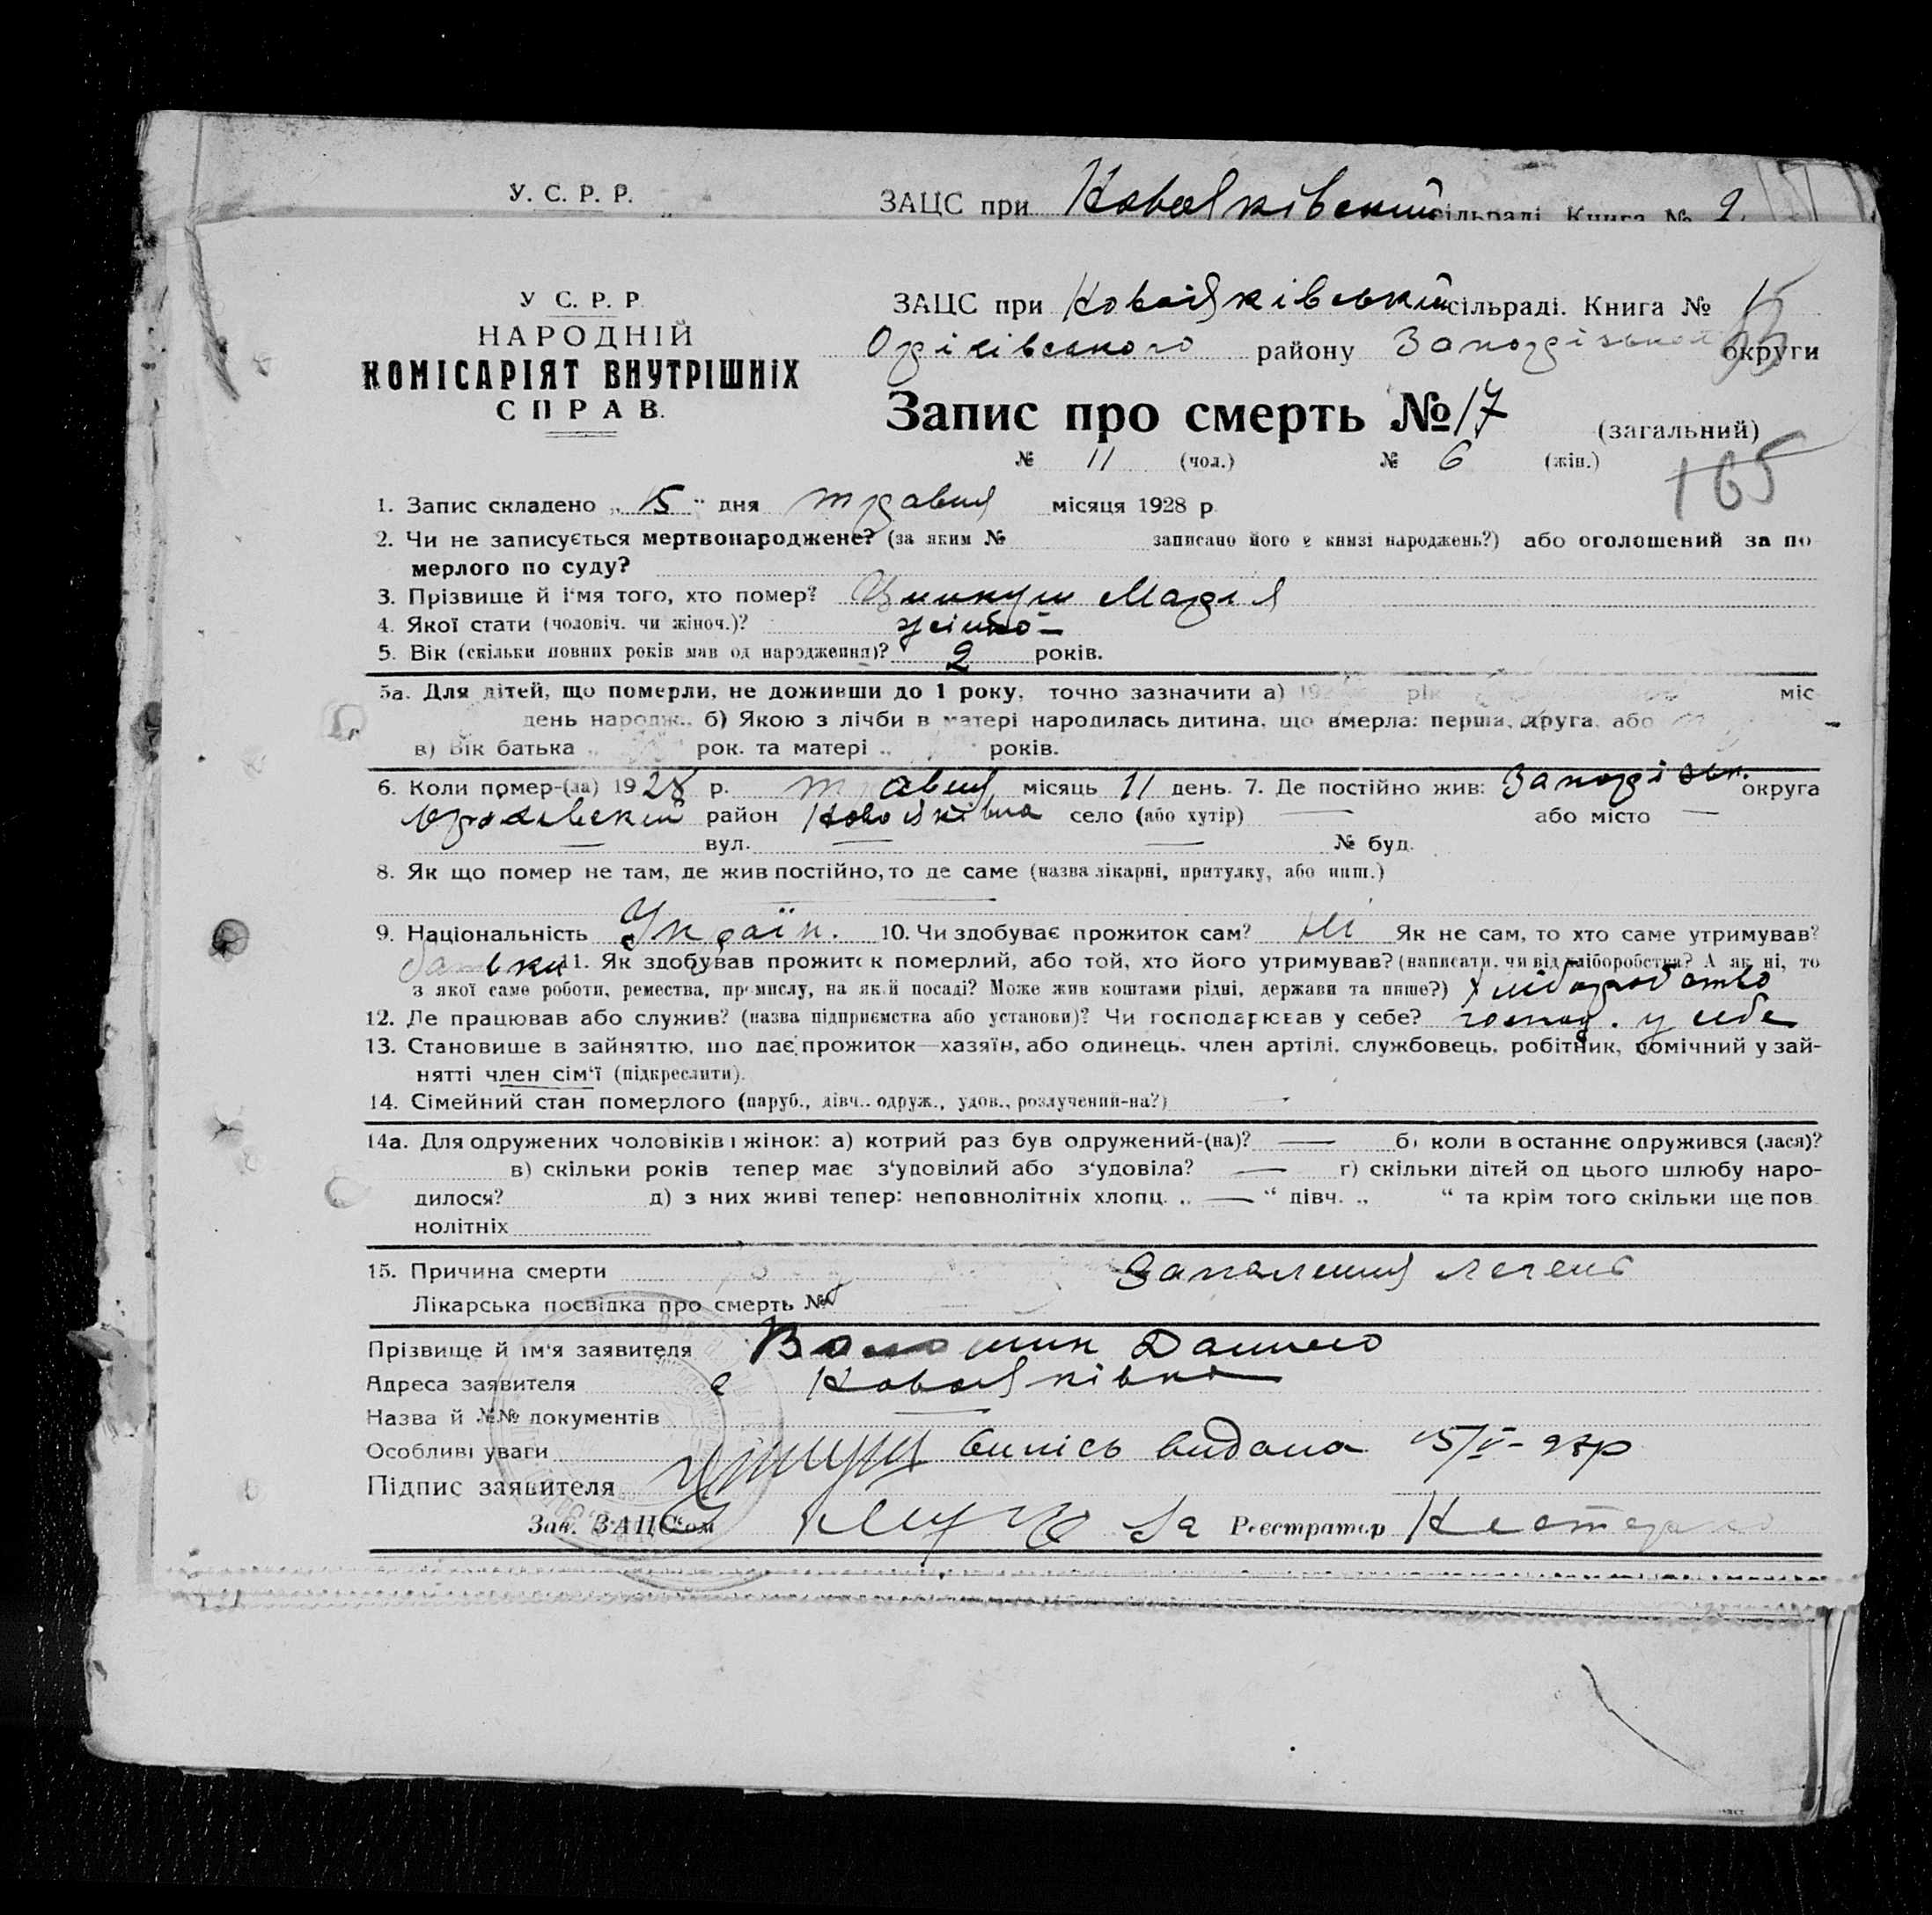 У. С. Р. Р. ЗАЦС при сільраді. Книга № 2
У С. Р. Р. ЗАЦС при сільраді. Книга №
НАРОДНІЙ Оріхівського району округи
КОМІСАРІЯТ ВНУТРІШНІХ
СПРАВ. Запис про смерть № 17 (загальний)
№ 11 (чол.) № 6 (жін.)
165
1. Запис складено „ 15 " дня травня місяця 1928 р
2. Чи не записується мертвонароджене? (за яким № записано його в книзі народжень?) або оголошений за по
мерлого по суду?
3. Прізвище й ім'я того, хто помер? Марія
4. Якої стати (чоловіч. чи жіноч.)?
5. Вік (скільки повних років мав од народження)? 2 років.
5а. Для дітей, що померли, не доживши до 1 року, точно зазначити а) рік міс
день народж., б) Якою з лічби в матері народилась дитина, що вмерла: перша, друга, або
в) Вік батька „ рок. та матері „ років.
6. Коли помер-(ла) 1928 р. травня місяць 11 день. 7. Де постійно жив: округа
район село (або хутір) — або місто —
— вул. — — № буд.
8. Як що помер не там, де жив постійно, то де саме (назва лікарні, притулку, або инш.)
9. Національність Україн. 10. Чи здобуває прожиток сам? Ні Як не сам, то хто саме утримував?
батьки 11. Як здобував прожиток померлий, або той, хто його утримував? (написати, чи від хліборобства? А як ні, то
з якої саме роботи, ремества, промислу, на якій посаді? Може жив коштами рідні, держави та инше?) хліборобство
12. Де працював або служив? (назва підприємства або установи)? Чи господарював у себе? господ. у себе
13. Становище в зайняттю, що дає прожиток—хазяїн, або одинець, член артілі, службовець, робітник, помічний у зай-
нятті член сім'ї (підкреслити).
14. Сімейний стан померлого (паруб., дівч., одруж., удов., розлучений-на?) —
14а. Для одружених чоловіків і жінок: а) котрий раз був одружений-(на)? — б) коли в останнє одружився (лася)?
в) скільки років тепер має з'удовілий або з'удовіла? — г) скільки дітей од цього шлюбу наро-
дилося? д) з них живі тепер: неповнолітніх хлопц. „ — " дівч. „ " та крім того скільки ще пов
нолітніх
15. Причина смерти Запалення легенів
Лікарська посвідка про смерть №
Прізвище й ім'я заявителя Волошин Данило
Адреса заявителя с
Назва й №№ документів —
Особливі уваги випись видана 15/V-28р
Підпис заявителя
Зав. ЗАЦС'ом За Реєстратор